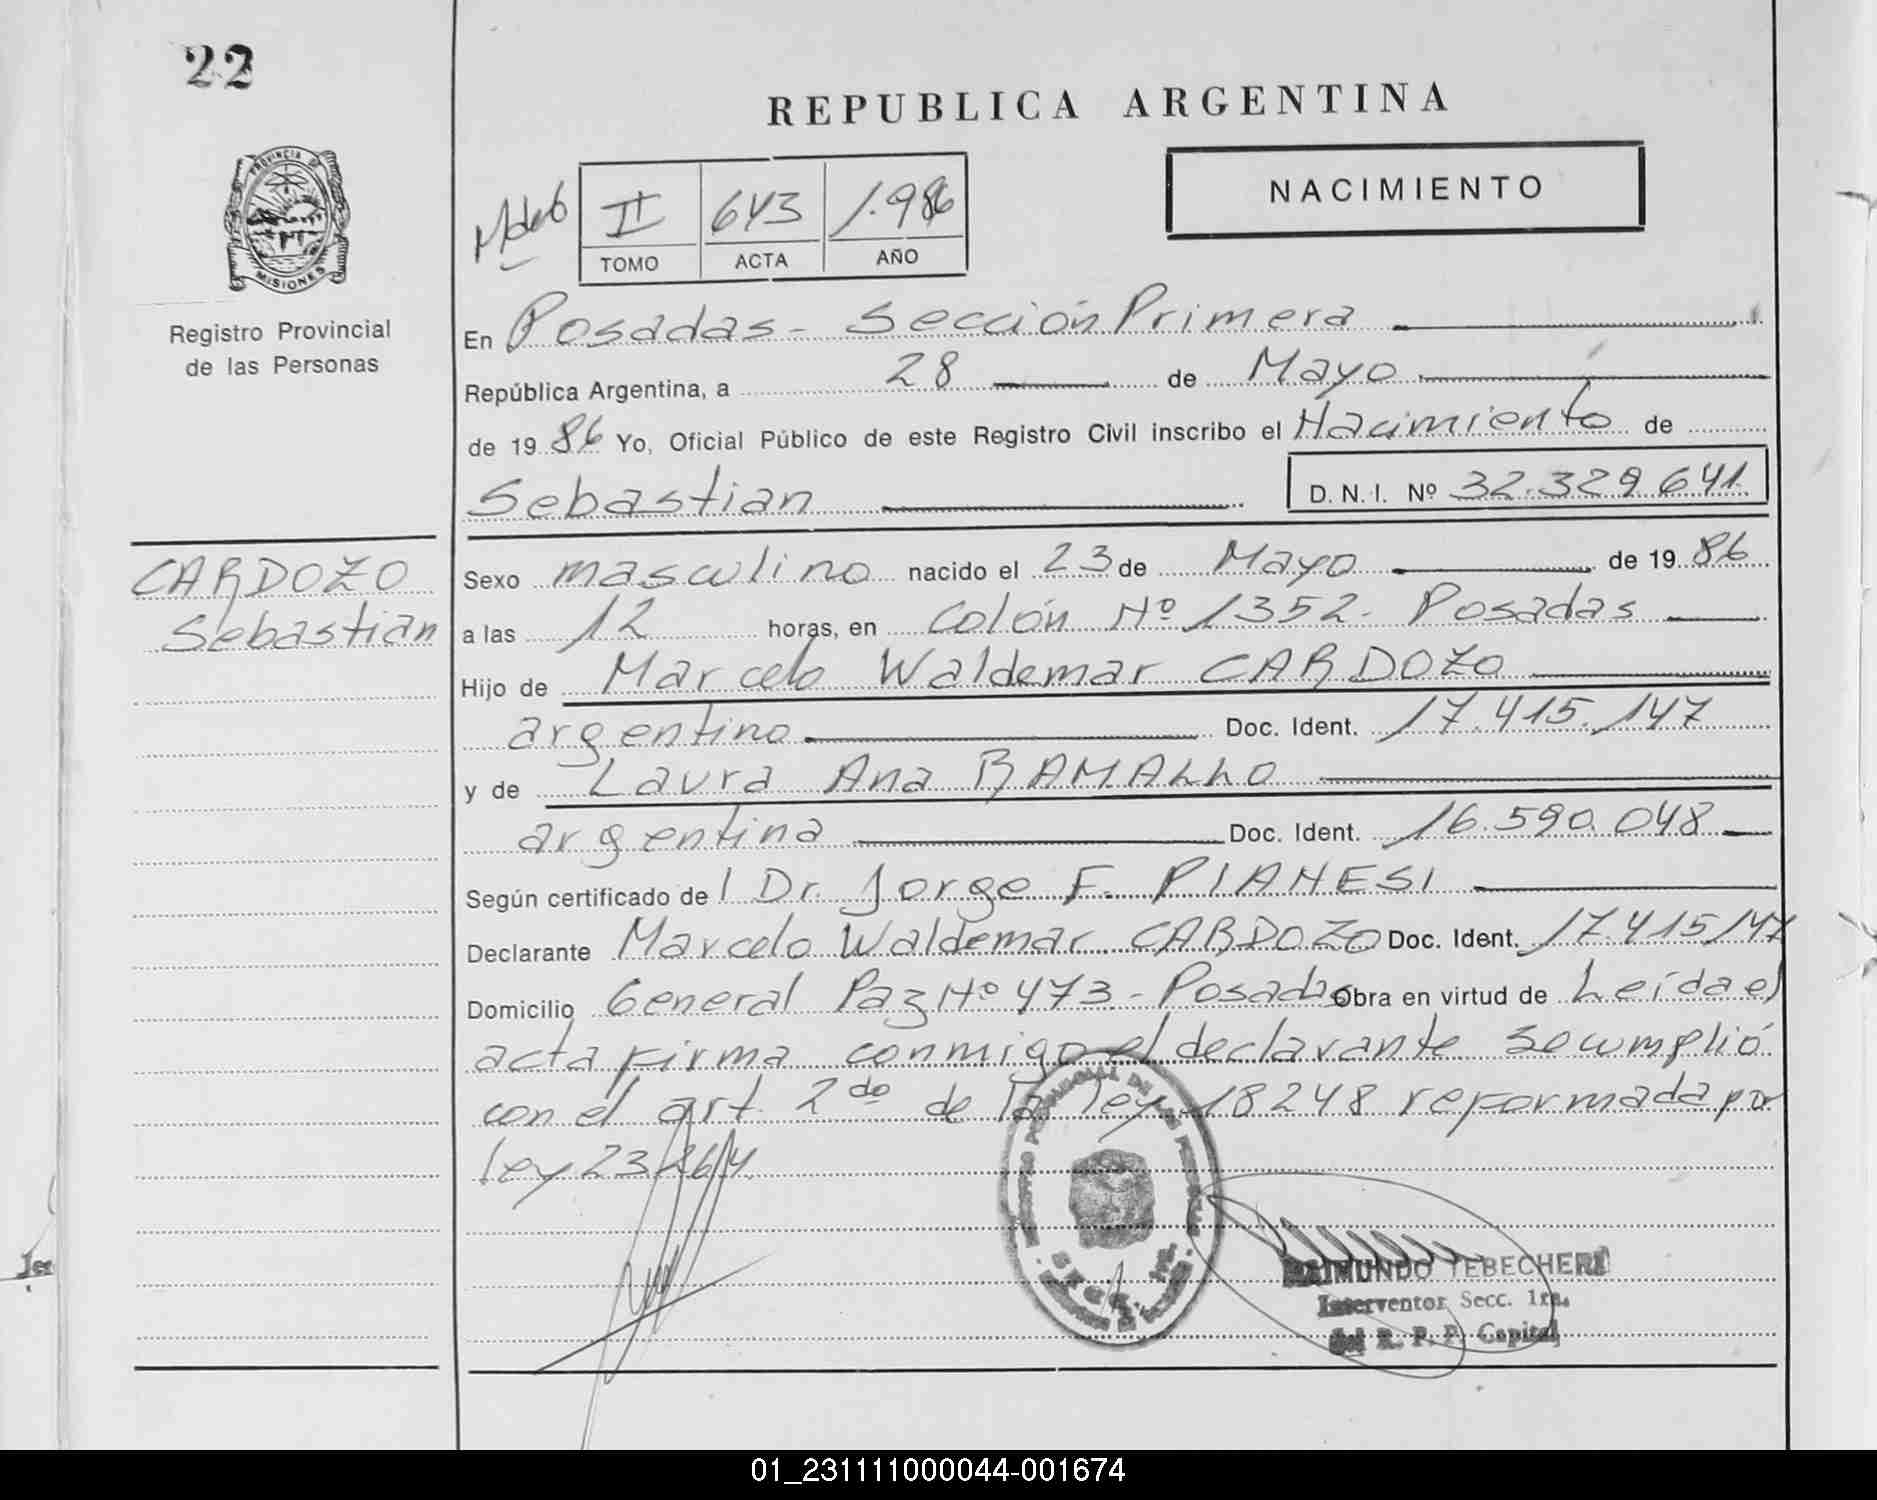 22
REPUBLICA ARGENTINA
PROVINCIA DE
MISIONES
Registro Provincial
de las Personas
II 643 1.986
TOMO ACTA AÑO
NACIMIENTO
En Posadas - Sección Primera
República Argentina, a 28 de Mayo
de 19 86 Yo, Oficial Público de este Registro Civil inscribo el Nacimiento de
Sebastian D.N.I. Nº 32.329.641.
CARDOZO
Sebastian
Sexo masculino nacido el 23 de Mayo de 19 86
a las 12 horas, en Colón Nº 1352. Posadas
Hijo de Marcelo Waldemar CARDOZO
argentino Doc. Ident. 17.415.147
y de Laura Ana RAMALLO
argentina Doc. Ident. 16.590.048
Según certificado del Dr. Jorge F. PIANESI
Declarante Marcelo Waldemar CARDOZO Doc. Ident. 17.415.147
Domicilio General Paz Nº 473 - Posadas Obra en virtud de Leída el
acta firma conmigo el declarante se cumplió
con el art. 2do de la ley 18248 reformada por
ley 23264.
RAIMUNDO YEBECHERI
Interventor Secc. 1ra.
del R. P. P. Capital
01_231111000044-001674